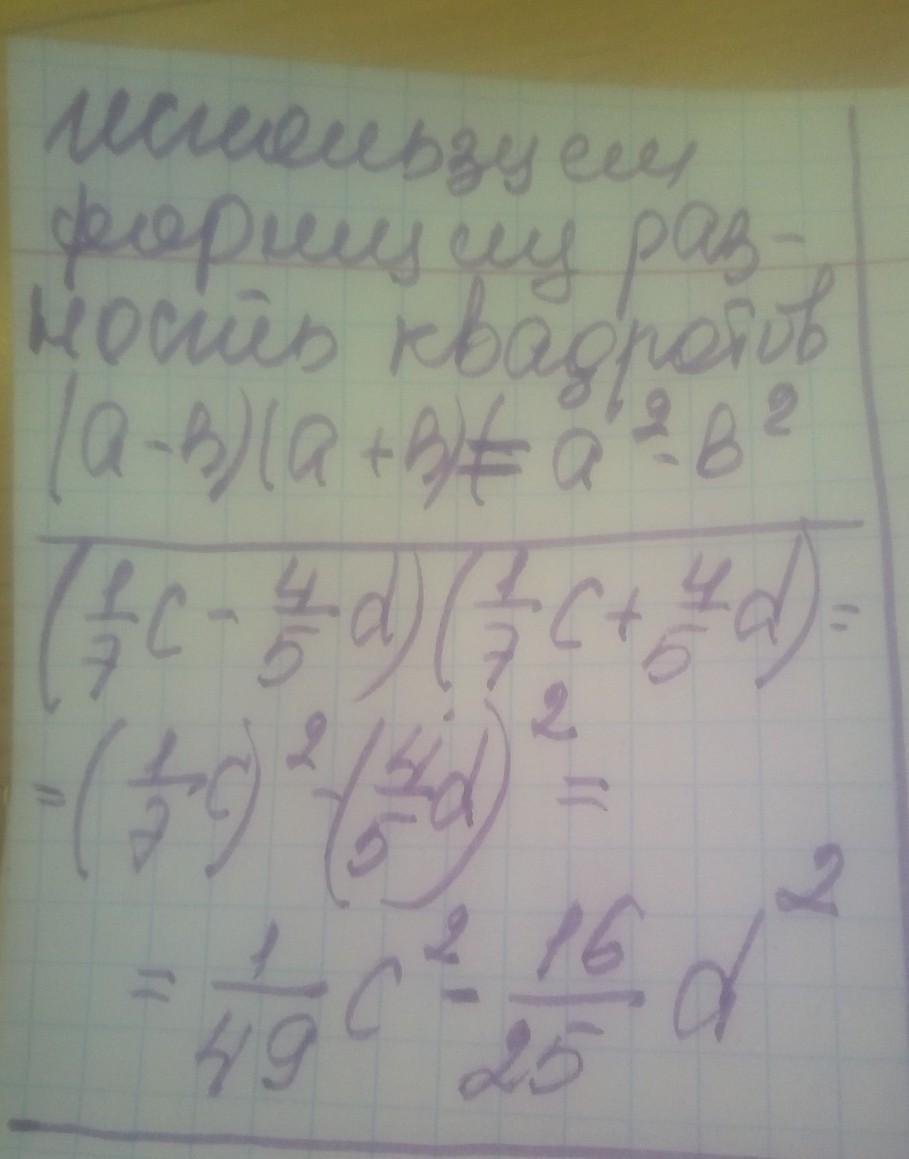 используем
формулу раз-
ность квадратов
(а-в)(а+в)(= а²-в²
(1/7 c - 4/5 d)(1/7 c + 4/5 d) =
= (1/7 c)² - (4/5 d)² =
= 1/49 c² - 16/25 d²